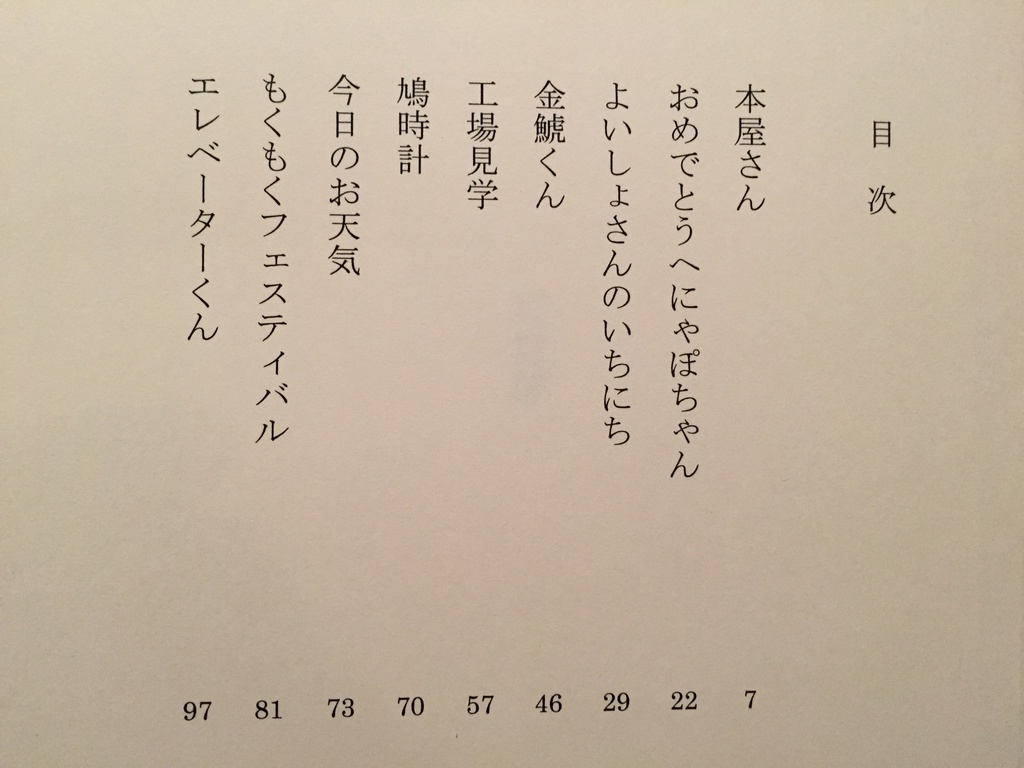 目次
本屋さん 7
おめでとうへにゃぽちゃん 22
よいしょさんのいちにち 29
金鯱くん 46
工場見学 57
鳩時計 70
今日のお天気 73
もくもくフェスティバル 81
エレベーターくん 97